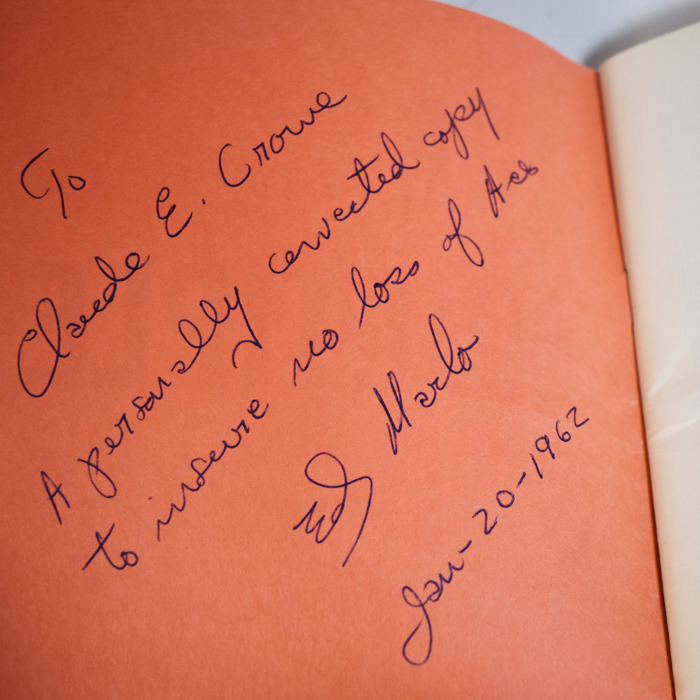 To
Claude E. Crowe
A personally corrected copy
to insure no loss of Aces
Ed Marlo
Jan-20-1962